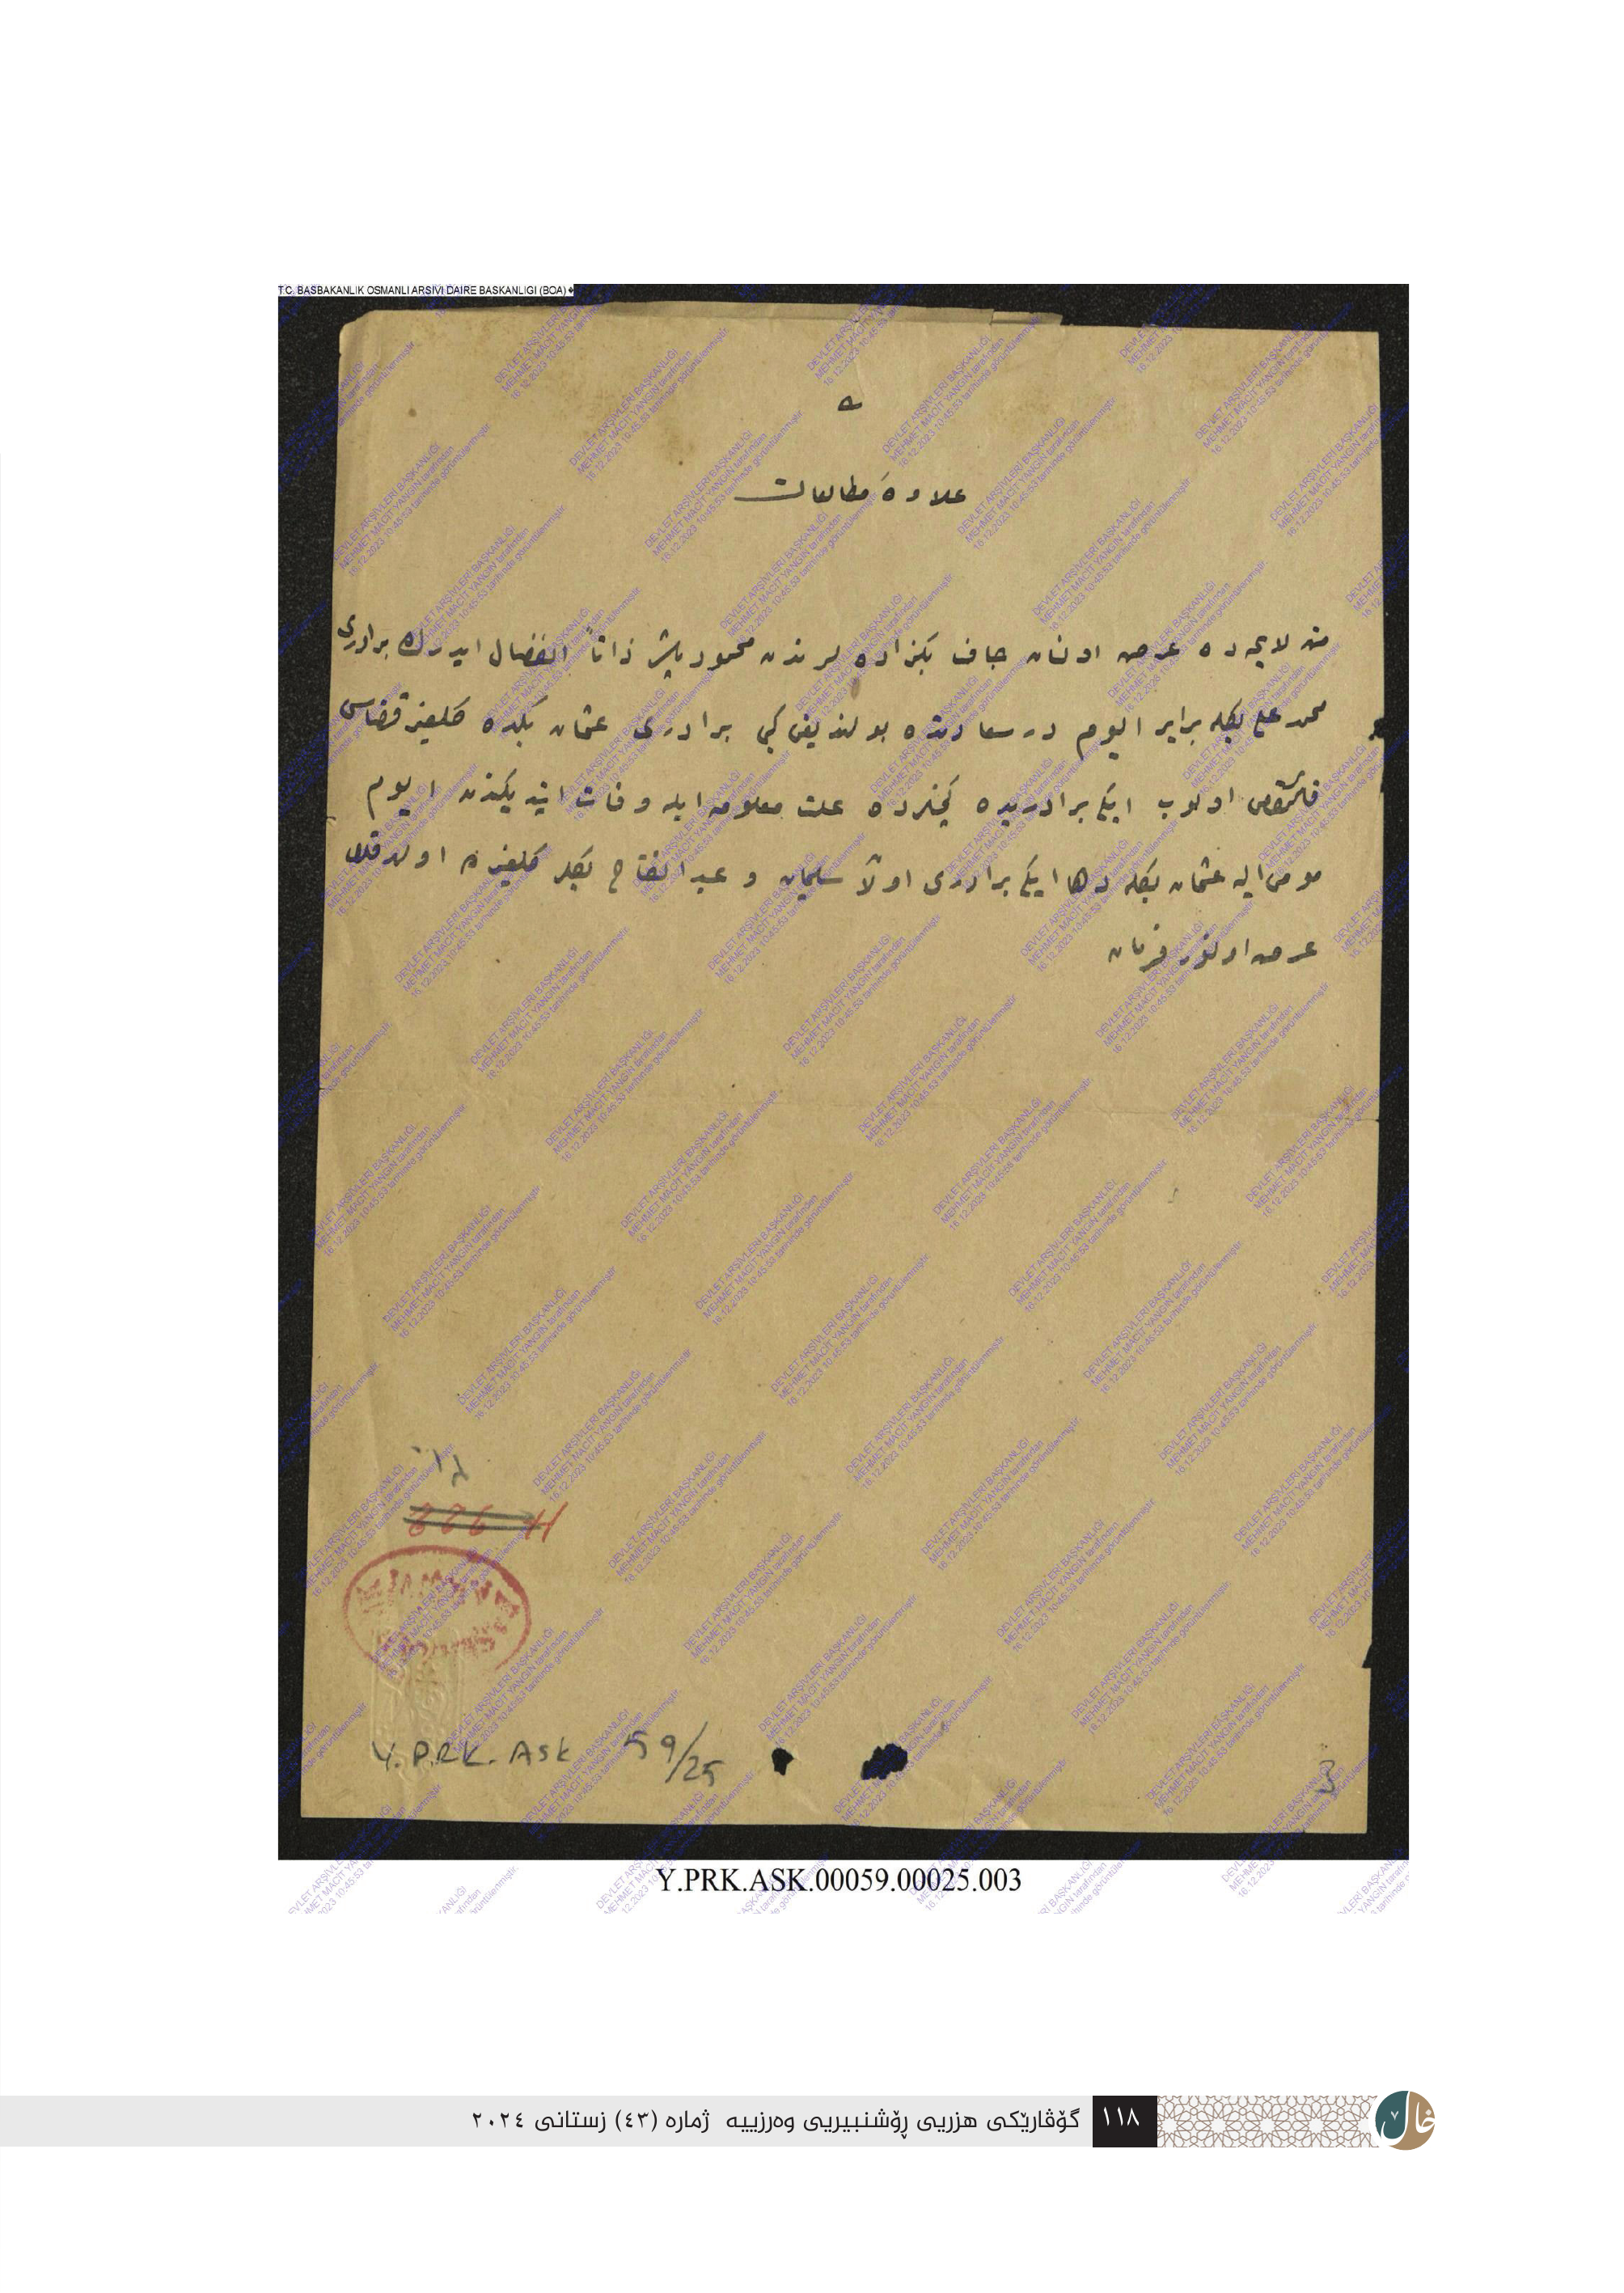 T.C. BASBAKANLIK OSMANLI ARSIVI DAIRE BASKANLIGI (BOA)
علاوۀ مطالعات
متن لايحه ده عرض اولنان جاف بكزاده لرندن محمود پاشا ذاتاً انفصال ايدرك برادرى
محمد على بكله برابر اليوم در سعادتده بولنديغى كبى برادرى عثمان بكده كلعنبر قضاسى
قائمقامى اولوب ايكى برادريده كچنلرده علت معلومه ايله وفات ايتديكندن اليوم
مومى اليه عثمان بكله دها ايكى برادرى اولان سليمان و عبد الفتاح بكلر كلعنبرده
عرض اولنور فرمان
Y. PRK. ASK 59/25
3
Y.PRK.ASK.00059.00025.003
١١٨ گۆڤارێکی هزریی ڕۆشنبیریی وەرزییە ژمارە (٤٣) زستانی ٢٠٢٤
خاڵ